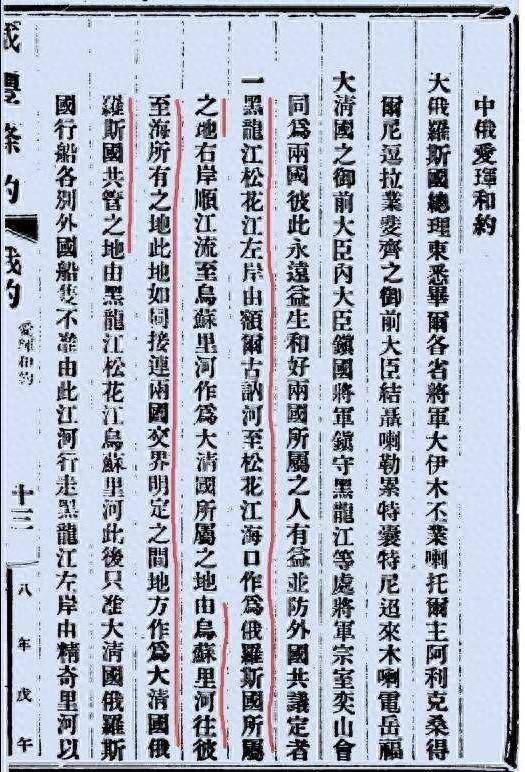 中俄愛琿和約
大俄羅斯國總理東悉畢爾各省將軍大伊木丕業喇托爾主阿利克桑得
爾尼逗拉業斐齊之御前大臣結聶喇勒累特囊特尼廻來木喇電岳福
大清國之御前大臣內大臣鎮國將軍鎮守黑龍江等處將軍宗室奕山會
同爲兩國彼此永遠益生和好兩國所屬之人有益並防外國共議定者
一黑龍江松花江左岸由額爾古訥河至松花江海口作爲俄羅斯國所屬
之地右岸順江流至烏蘇里河作爲大清國所屬之地由烏蘇里河往彼
至海所有之地此地如同接連兩國交界明定之間地方作爲大清國俄
羅斯國共管之地由黑龍江松花江烏蘇里河此後只准大清國俄羅斯
國行船各別外國船隻不准由此江河行走黑龍江左岸由精奇里河以
咸豐條約
俄約
愛琿和約
十三
八年戊午